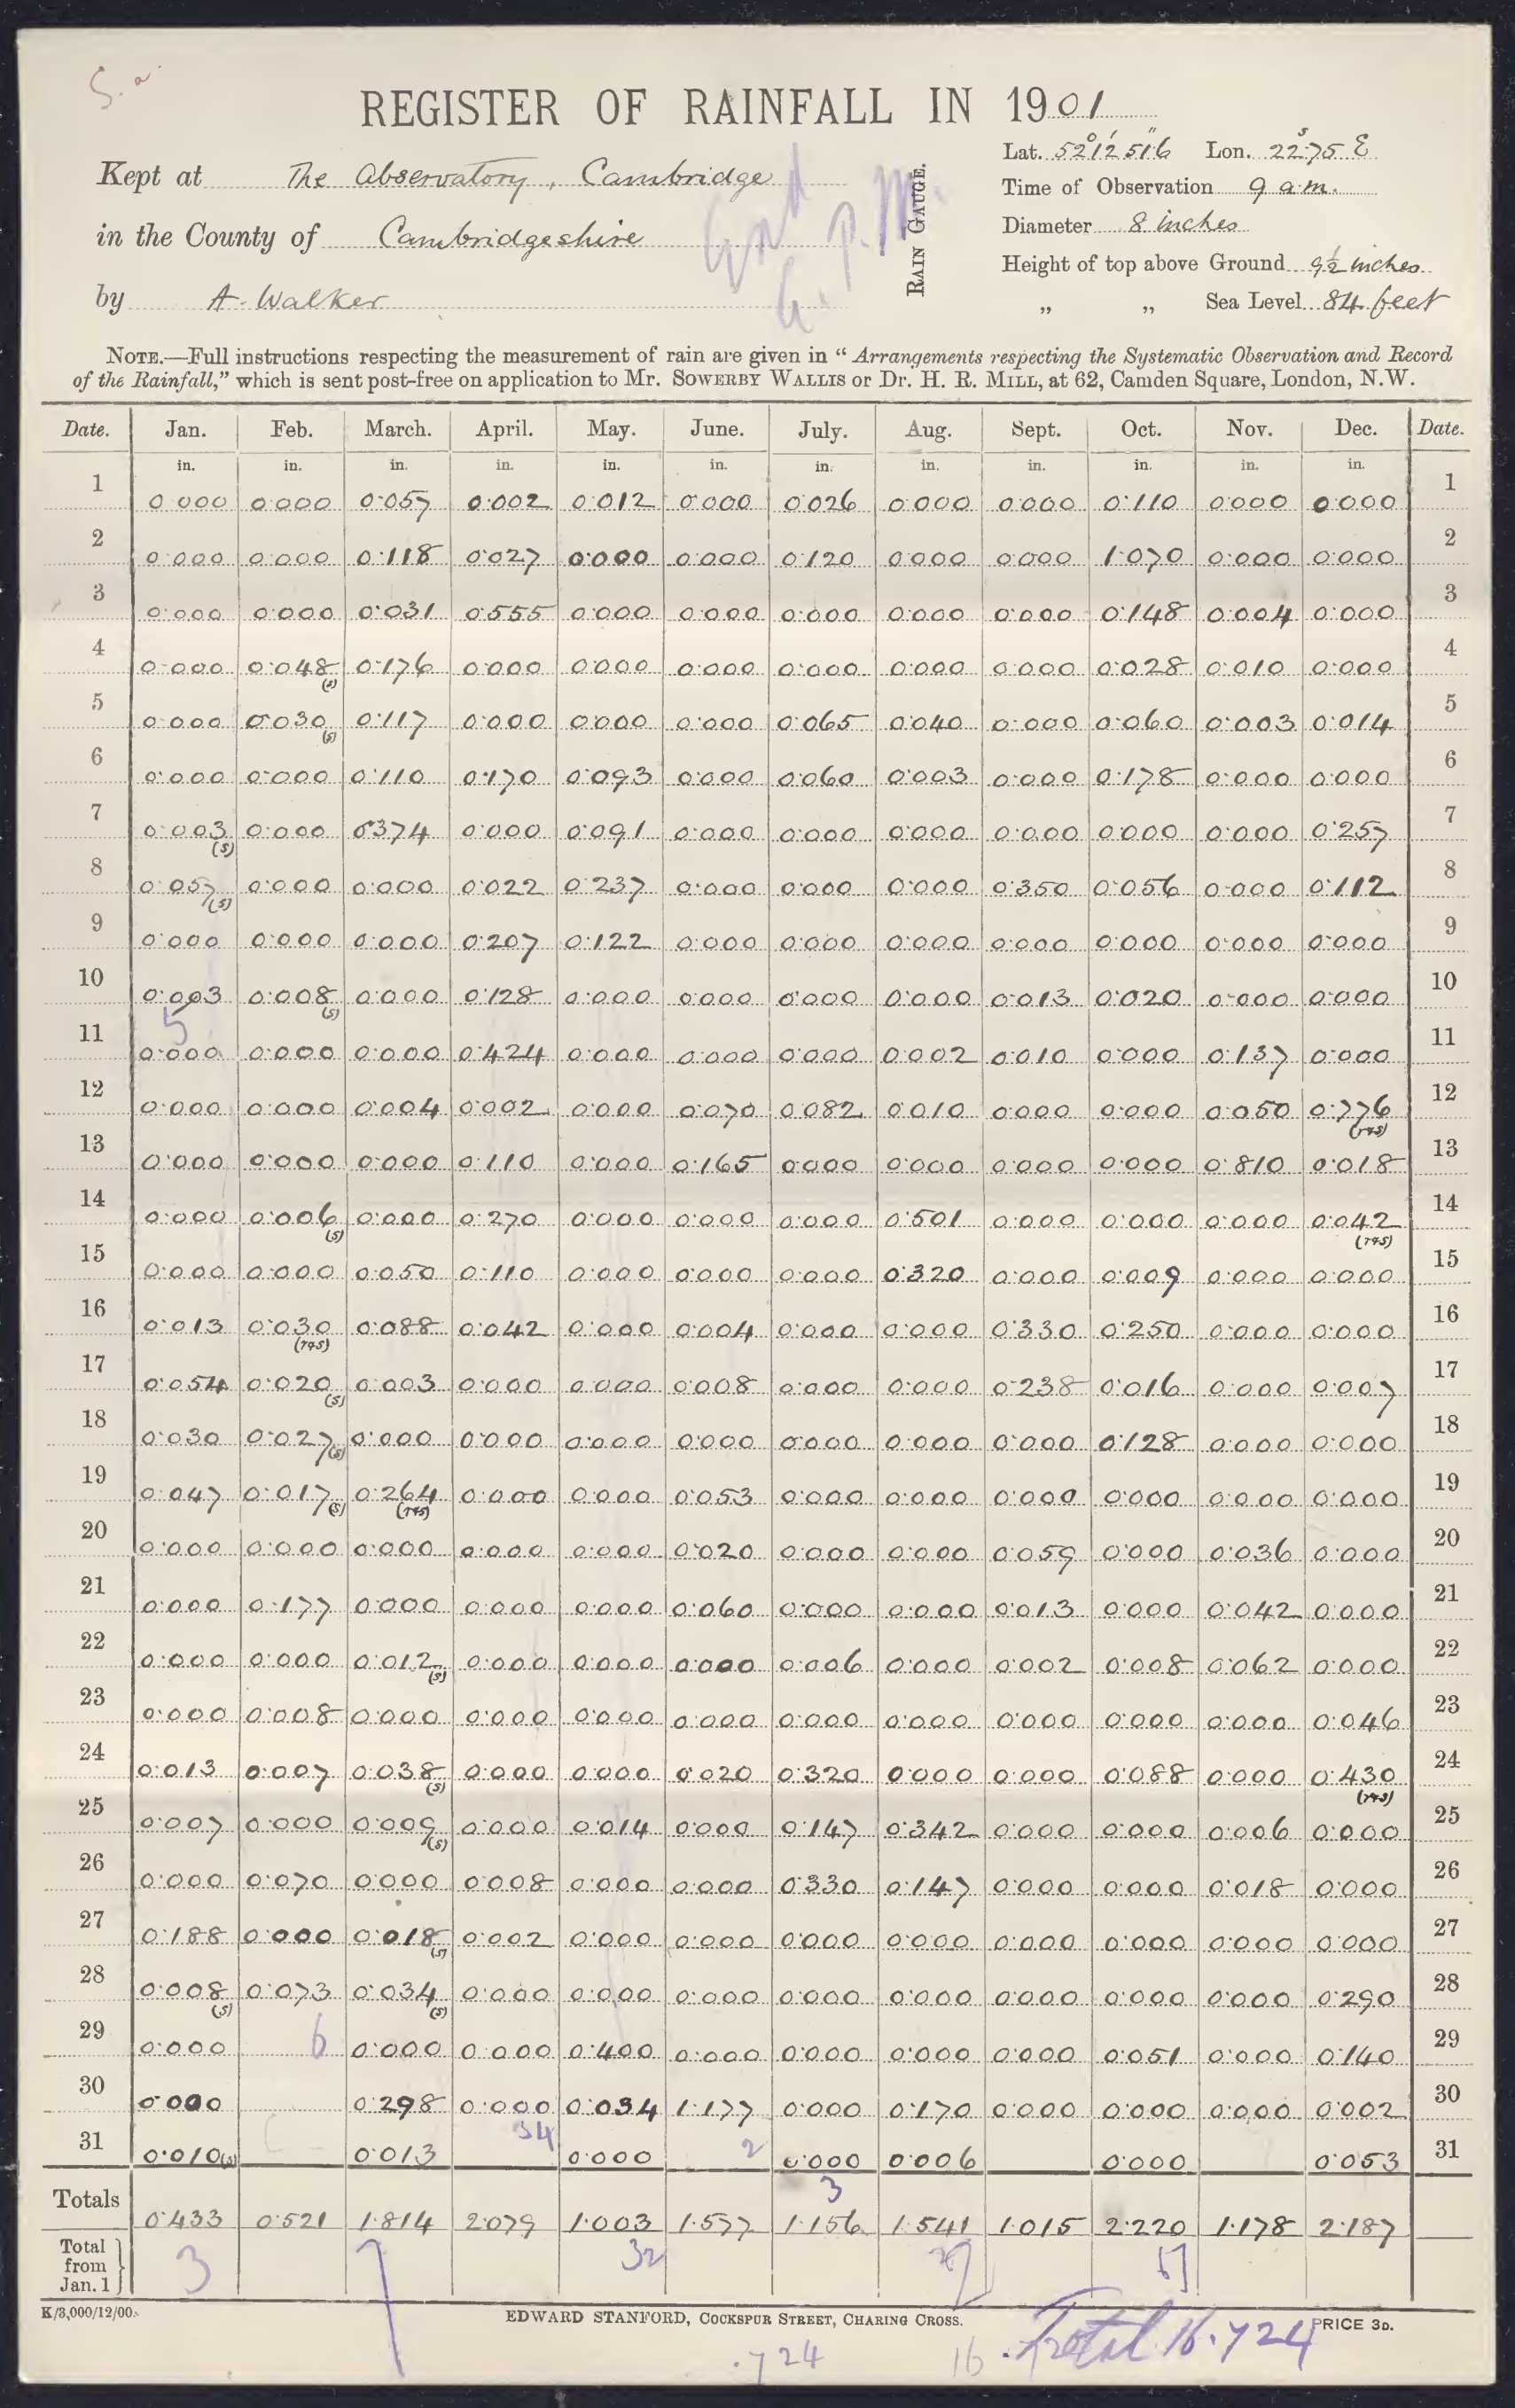 S. a.
REGISTER OF RAINFALL IN 1901
Kept at The Observatory, Cambridge
in the County of Cambridgeshire
by A. Walker
RAIN GAUGE.
Lat. 52° 12′ 51″6 Lon. 22ˢ.75 E
Time of Observation 9 a.m.
Diameter 8 inches
Height of top above Ground 9½ inches
„ „ Sea Level 84 feet
NOTE.—Full instructions respecting the measurement of rain are given in “Arrangements respecting the Systematic Observation and Record
of the Rainfall,” which is sent post-free on application to Mr. SOWERBY WALLIS or Dr. H. R. MILL, at 62, Camden Square, London, N.W.
Date. Jan. Feb. March. April. May. June. July. Aug. Sept. Oct. Nov. Dec. Date.
in. in. in. in. in. in. in. in. in. in. in. in.
1 0·000 0·000 0·057 0·002 0·012 0·000 0·026 0·000 0·000 0·110 0·000 0·000 1
2 0·000 0·000 0·118 0·027 0·000 0·000 0·120 0·000 0·000 1·070 0·000 0·000 2
3 0·000 0·000 0·031 0·555 0·000 0·000 0·000 0·000 0·000 0·148 0·004 0·000 3
4 0·000 0·048 (s) 0·176 0·000 0·000 0·000 0·000 0·000 0·000 0·028 0·010 0·000 4
5 0·000 0·030 (s) 0·117 0·000 0·000 0·000 0·065 0·040 0·000 0·060 0·003 0·014 5
6 0·000 0·000 0·110 0·170 0·093 0·000 0·060 0·003 0·000 0·178 0·000 0·000 6
7 0·003 (s) 0·000 0·374 0·000 0·091 0·000 0·000 0·000 0·000 0·000 0·000 0·257 7
8 0·057 (s) 0·000 0·000 0·022 0·237 0·000 0·000 0·000 0·350 0·056 0·000 0·112 8
9 0·000 0·000 0·000 0·207 0·122 0·000 0·000 0·000 0·000 0·000 0·000 0·000 9
10 0·003 0·008 (s) 0·000 0·128 0·000 0·000 0·000 0·000 0·013 0·020 0·000 0·000 10
5
11 0·000 0·000 0·000 0·424 0·000 0·000 0·000 0·002 0·010 0·000 0·137 0·000 11
12 0·000 0·000 0·004 0·002 0·000 0·070 0·082 0·010 0·000 0·000 0·050 0·776 (r&s) 12
13 0·000 0·000 0·000 0·110 0·000 0·165 0·000 0·000 0·000 0·000 0·810 0·018 13
14 0·000 0·006 (s) 0·000 0·270 0·000 0·000 0·000 0·501 0·000 0·000 0·000 0·042 (r&s) 14
15 0·000 0·000 0·050 0·110 0·000 0·000 0·000 0·320 0·000 0·009 0·000 0·000 15
16 0·013 0·030 (r&s) 0·088 0·042 0·000 0·004 0·000 0·000 0·330 0·250 0·000 0·000 16
17 0·054 0·020 (s) 0·003 0·000 0·000 0·008 0·000 0·000 0·238 0·016 0·000 0·007 17
18 0·030 0·027 (s) 0·000 0·000 0·000 0·000 0·000 0·000 0·000 0·128 0·000 0·000 18
19 0·047 0·017 (s) 0·264 (r&s) 0·000 0·000 0·053 0·000 0·000 0·000 0·000 0·000 0·000 19
20 0·000 0·000 0·000 0·000 0·000 0·020 0·000 0·000 0·059 0·000 0·036 0·000 20
21 0·000 0·177 0·000 0·000 0·000 0·060 0·000 0·000 0·013 0·000 0·042 0·000 21
22 0·000 0·000 0·012 (s) 0·000 0·000 0·000 0·006 0·000 0·002 0·008 0·062 0·000 22
23 0·000 0·008 0·000 0·000 0·000 0·000 0·000 0·000 0·000 0·000 0·000 0·046 23
24 0·013 0·007 0·038 (s) 0·000 0·000 0·020 0·320 0·000 0·000 0·088 0·000 0·430 (r&s) 24
25 0·007 0·000 0·009 (s) 0·000 0·014 0·000 0·147 0·342 0·000 0·000 0·006 0·000 25
26 0·000 0·070 0·000 0·008 0·000 0·000 0·330 0·147 0·000 0·000 0·018 0·000 26
27 0·188 0·000 0·018 (s) 0·002 0·000 0·000 0·000 0·000 0·000 0·000 0·000 0·000 27
28 0·008 (s) 0·073 0·034 (s) 0·000 0·000 0·000 0·000 0·000 0·000 0·000 0·000 0·290 28
29 0·000 6 0·000 0·000 0·400 0·000 0·000 0·000 0·000 0·051 0·000 0·140 29
30 0·000 0·298 0·000 0·034 1·177 0·000 0·170 0·000 0·000 0·000 0·002 30
34 2
31 0·010 (s) 0·013 0·000 0·000 0·006 0·000 0·053 31
3
Totals 0·433 0·521 1·814 2·079 1·003 1·577 1·156 1·541 1·015 2·220 1·178 2·187
Total from Jan. 1
3 7 32
K/3,000/12/00.
EDWARD STANFORD, COCKSPUR STREET, CHARING CROSS.
PRICE 3D.
.724 16 . Total 16.724